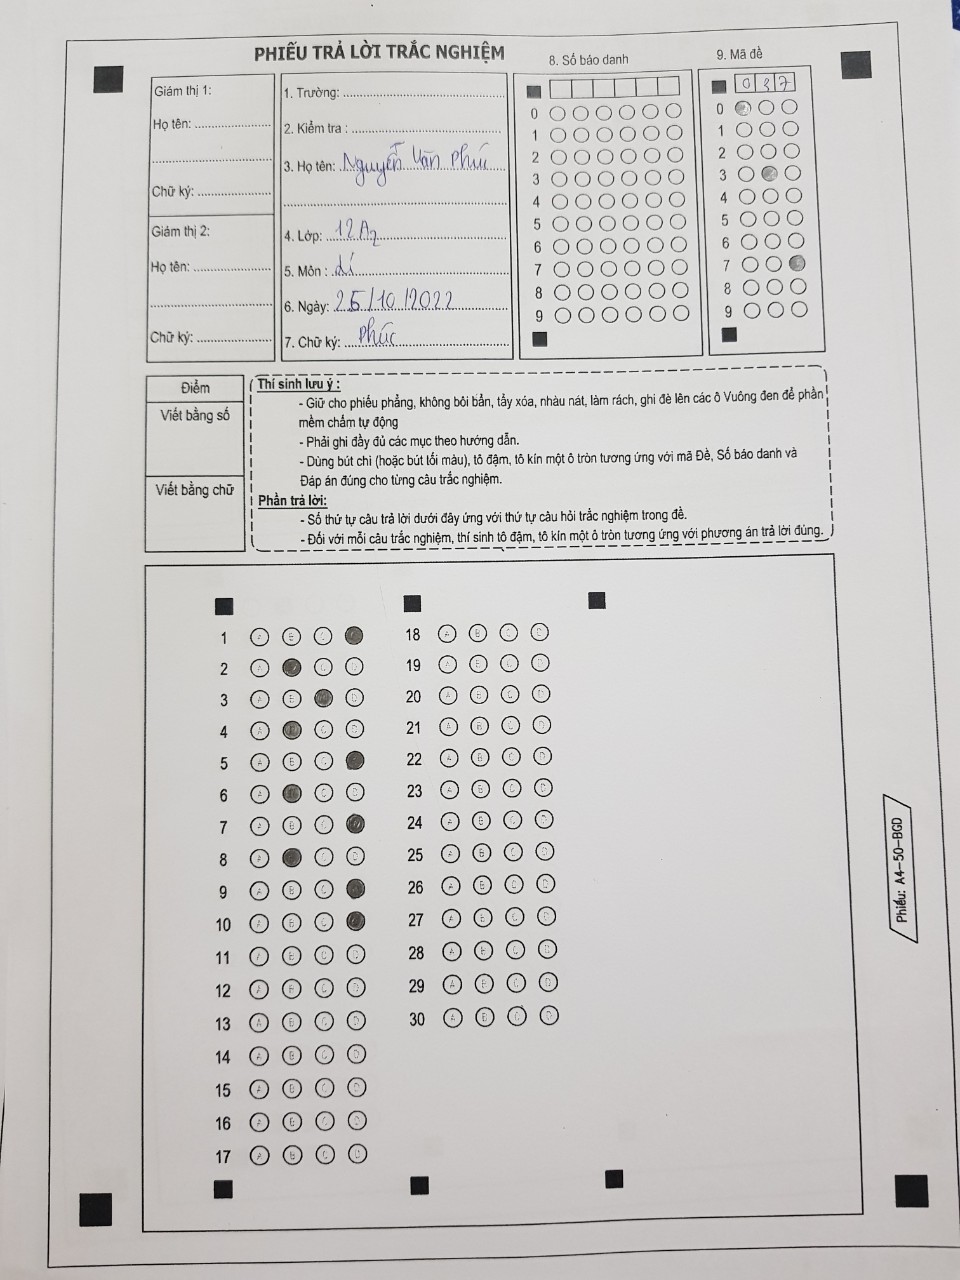 PHIẾU TRẢ LỜI TRẮC NGHIỆM
Giám thị 1:
Họ tên: ....................
....................
Chữ ký: ....................
Giám thị 2:
Họ tên: ....................
....................
Chữ ký: ....................
1. Trường: ....................
2. Kiểm tra : ....................
3. Họ tên: Nguyễn Văn Phúc
....................
4. Lớp: 12A2
5. Môn : Lí
6. Ngày: 25/10/2022
7. Chữ ký: Phúc
8. Số báo danh
0
1
2
3
4
5
6
7
8
9
9. Mã đề
0 3 7
0
1
2
3
4
5
6
7
8
9
Điểm
Viết bằng số
Viết bằng chữ
Thí sinh lưu ý :
- Giữ cho phiếu phẳng, không bôi bẩn, tẩy xóa, nhàu nát, làm rách, ghi đè lên các ô Vuông đen để phần
mềm chấm tự động
- Phải ghi đầy đủ các mục theo hướng dẫn.
- Dùng bút chì (hoặc bút tối màu), tô đậm, tô kín một ô tròn tương ứng với mã Đề, Số báo danh và
Đáp án đúng cho từng câu trắc nghiệm.
Phần trả lời:
- Số thứ tự câu trả lời dưới đây ứng với thứ tự câu hỏi trắc nghiệm trong đề.
- Đối với mỗi câu trắc nghiệm, thí sinh tô đậm, tô kín một ô tròn tương ứng với phương án trả lời đúng.
1 A B C
2 A C D
3 A B D
4 A C D
5 A B C
6 A C D
7 A B C
8 A C D
9 A B C
10 A B C
11 A B C D
12 A B C D
13 A B C D
14 A B C D
15 A B C D
16 A B C D
17 A B C D
18 A B C D
19 A B C D
20 A B C D
21 A B C D
22 A B C D
23 A B C D
24 A B C D
25 A B C D
26 A B C D
27 A B C D
28 A B C D
29 A B C D
30 A B C D
Phiếu: A4-50-BGD